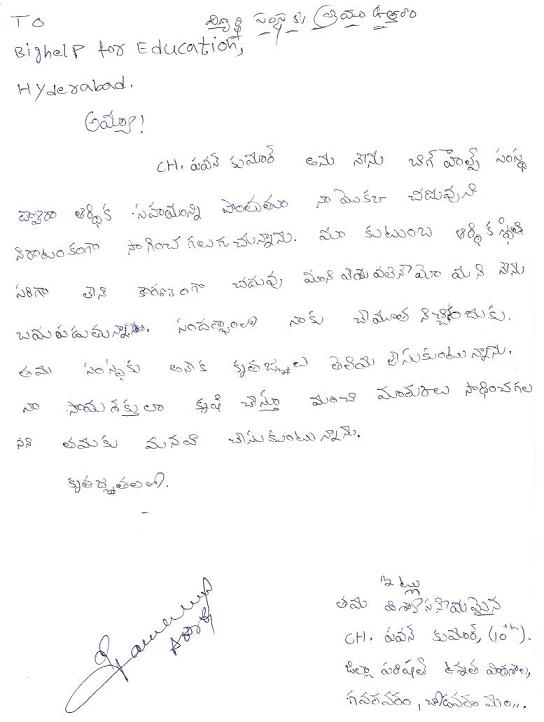 TO
విద్యార్థి సంస్థకు వ్రాయు ఉత్తరం
Bighelp for Education,
Hyderabad.
అమ్మా!
CH. పవన్ కుమార్ అను నేను బిగ్ హెల్ప్ సంస్థ
ద్వారా ఆర్థిక సహాయాన్ని పొందుతూ నా యొక్క చదువుని
నిరాటంకంగా సాగించ గలుగుచున్నాను. మా కుటుంబ ఆర్థిక స్థితి
సరిగా లేని కారణంగా చదువు మాని వేయవలెనేమో యని నేను
బయపడుతున్న సందర్భంలో నాకు చేయూత నిచ్చినందుకు.
తమ సంస్థకు అనేక కృతజ్ఞతలు తెలియ చేసుకుంటున్నాను.
నా సాయశక్తులా కృషి చేస్తూ మంచి మార్కులు సాధించగల
నని తమకు మనవి చేసుకుంటున్నాను.
కృతజ్ఞతలతో.
ఇట్లు
తమ విశ్వాసనీయమైన
CH. పవన్ కుమార్, (10th).
జిల్లా పరిషత్ ఉన్నత పాఠశాల,
గవరవరం, చోడవరం మం,,.